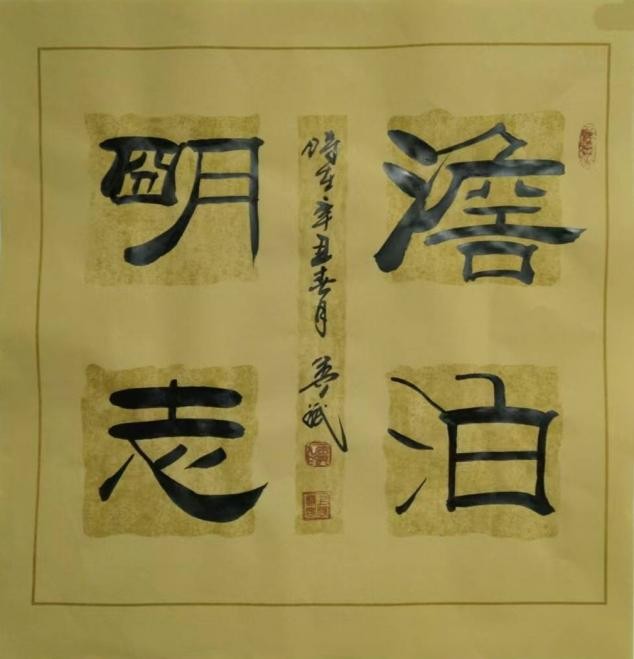 澹泊
明志
時在辛丑春月
斌